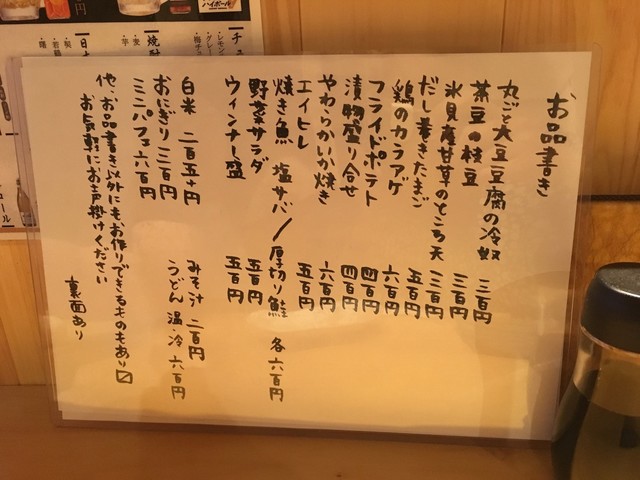 お品書き
丸ごと大豆豆腐の冷奴 三百円
茶豆の枝豆 三百円
氷見産甘草のところ天 三百円
だし巻きたまご 五百円
鶏のカラアゲ 六百円
フライドポテト 四百円
漬物盛り合せ 四百円
やわらかいか焼き 六百円
エイヒレ 五百円
焼き魚 塩サバ/厚切り鮭 各六百円
野菜サラダ 五百円
ウィンナー盛 五百円
白米 二百五十円 みそ汁 二百円
おにぎり 三百円 うどん 温・冷 六百円
ミニパフェ 六百円
他、お品書き以外にもお作りできるものもあり〼
お気軽にお声掛けください
裏面あり
ハイボール
焼酎
・麦
・芋